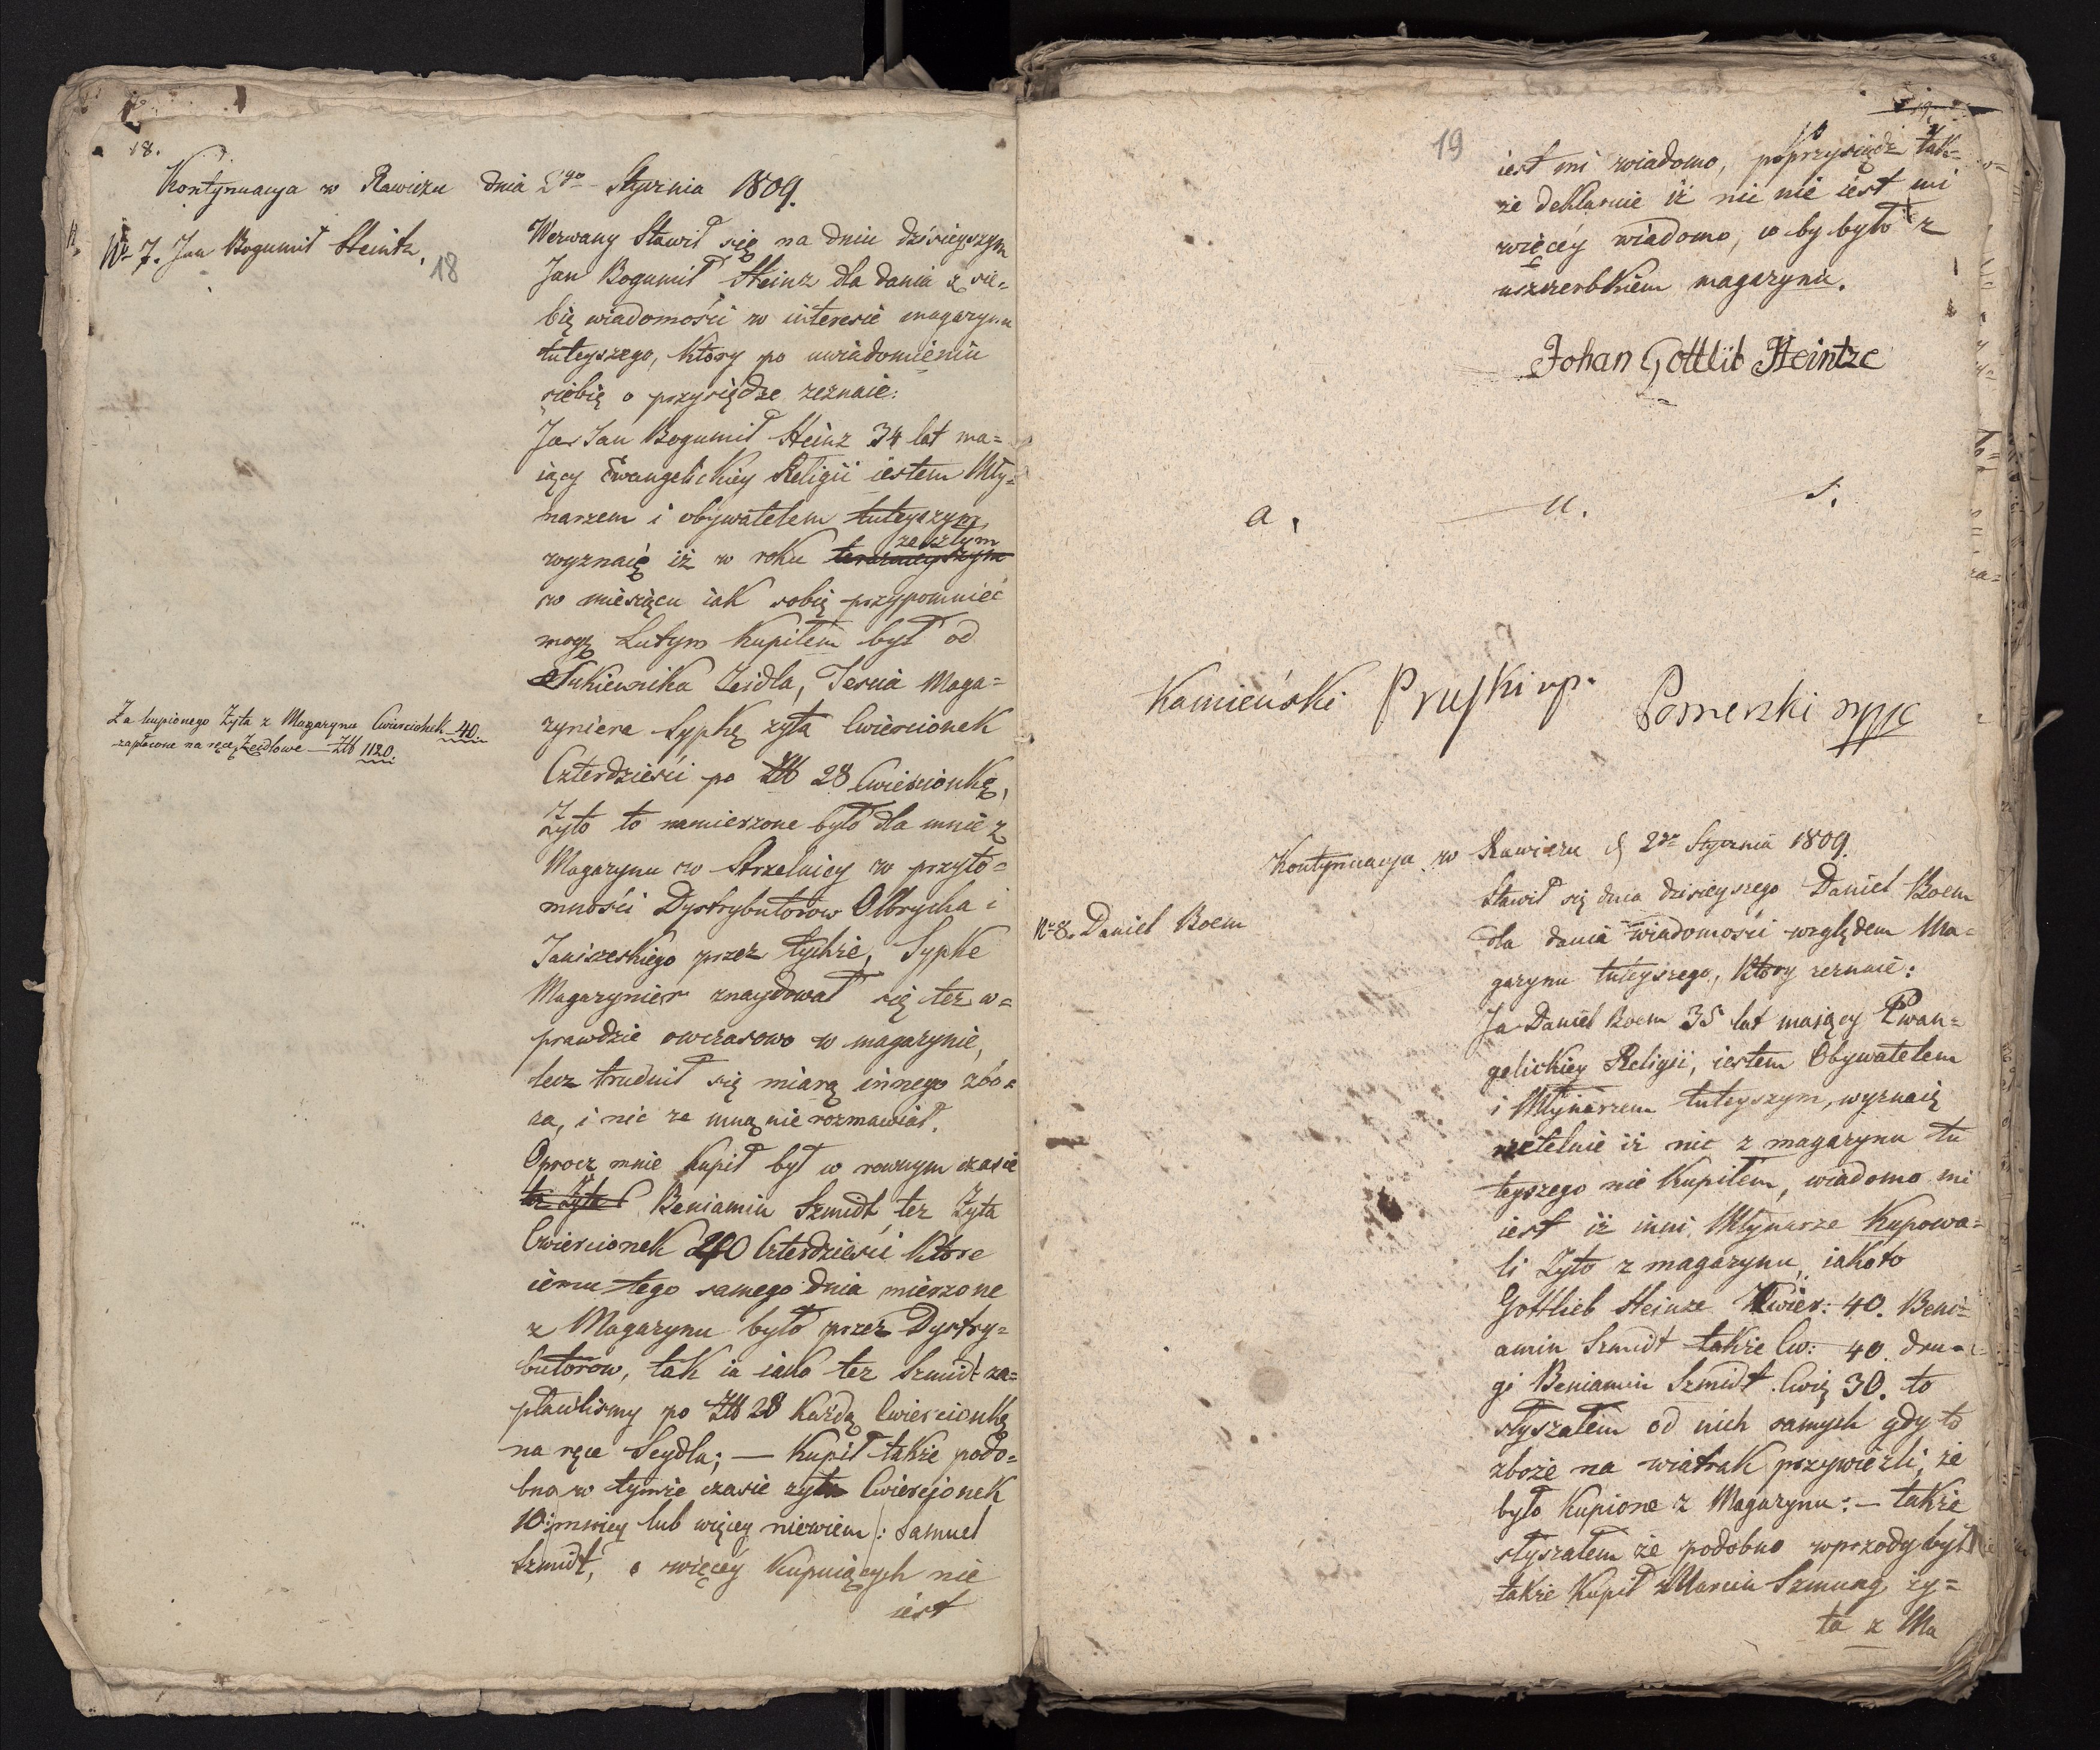 18.
Kontynuacya w Rawiczu dnia 2go Stycznia 1809.
Nr 7. Jan Bogumił Heintz.
18
Wezwany stawił się na dniu dzisieyszym
Jan Bogumił Heinz dla dania z sie=
bię wiadomości w interesie magazynu
tuteyszego, który po uwiadomieniu
siebię o przysiędze zeznaie:
Ja Jan Bogumił Heinz 34 lat ma=
iący Ewangelickiey Religii iestem Mły=
narzem i obywatelem tuteyszym
zeszłym
wyznaię iż w roku teraznieyszym
w miesiącu iak sobię przypomnieć
mogę Lutym kupiłem był od
Sukiennika Zeidla, Tescia Maga=
zyniera Sypkę zyta Cwiercionek
Czterdzieści po Złt 28 Cwiercionkę,
Zyto to namierzone było dla mnie z
Magazynu w Strzelnicy w przyto=
mności Dystrybutorow Olbrycha i
Janiszeskiego przez tychże, Sypke
Magazynier znaydował się tez w=
prawdzie owczasowo w magazynie,
lecz trudnił się miarą innego zbo=
za, i nic ze mną nie rozmawiał.
Oprocz mnie kupił był w rownym czasie
tez Zyta Beniamin Szmidt, tez Zyta
Cwiercionek 40 Czterdzieści które
iemu tego samego dnia mierzone
z Magazynu było przez Dystry=
butorow, tak ia iako tez Szmidt za=
płaciliśmy po Złt 28 każdą Cwiercionkę
na ręce Seydla; — kupił także podo=
bno w tymże czasie zyta Cwiercionek
10 :/mniey lub więcey niewiem/: Samuel
Szmidt, o więcéy kupuiących nie
iest
Za kupionego Zyta z Magazynu Cwiercionek 40.
zapłacone na ręcę Zeidlowe — Złt 1120.
19
iest mi wiadomo, poprzysiądz tak=
że deklaruie iż nic nie iest mi
więcéy wiadomo, co by było z
uszczerbkiem magazynu.
Johan Gottlib Heintze
a. u. s.
Kamieński Pruski mp. Pomerski mpp
Kontynuacya w Rawiczu d 2go Stycznia 1809.
Nr 8. Daniel Boem
Stawił się dnia dzisieyszego Daniel Boem
dla dania wiadomości względem Ma=
gazynu tuteyszego, który zeznaie:
Ja Daniel Boem 35 lat maiący Ewan=
gelickiey Religii, iestem Obywatelem
i Młynarzem tuteyszym, wyznaię
rzetelnie iż nic z magazynu tu
teyszego nie kupiłem, wiadomo mi
iest iż inni Młynarze kupowa=
li Zyto z magazynu, iakoto
Gottlieb Heinze Cwier: 40. Beni=
amin Szmidt także Cw: 40. dru=
gi Beniamin Szmidt Cwię 30. to
słyszałem od nich samych gdy to
zboże na wiatrak przywieźli, że
było kupione z Magazynu: — także
słyszałem że podobno wprzody był
także kupił Marcin Szmung zy=
ta z Ma